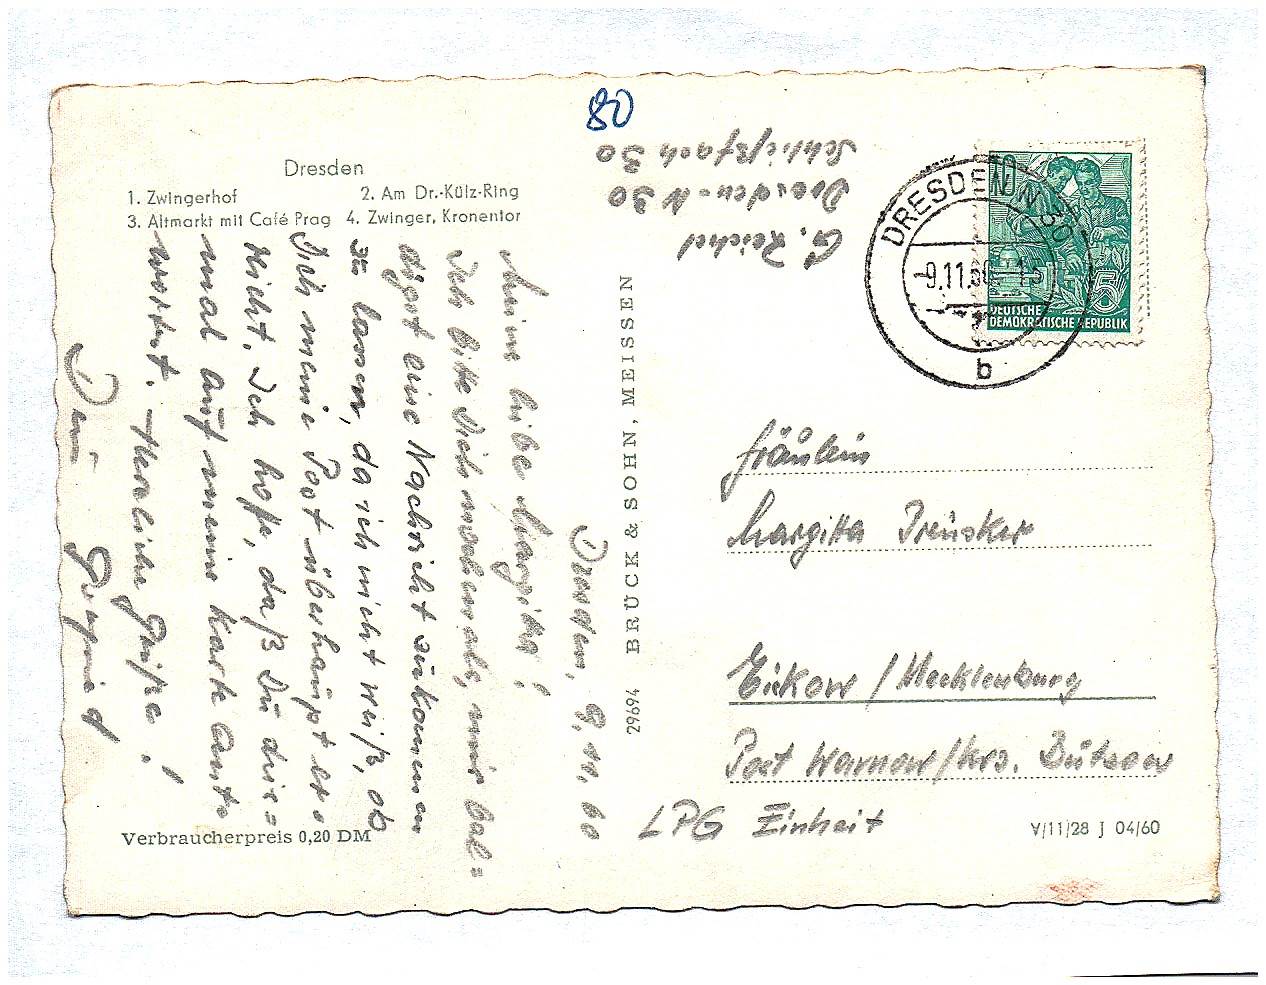 80
Dresden
1. Zwingerhof 2. Am Dr.-Külz-Ring
3. Altmarkt mit Café Prag 4. Zwinger, Kronentor
G. Reichel
Dresden-N 30
Schließfach 30
DRESDEN N 30
-9.11.60-15
b
5
DEUTSCHE
DEMOKRATISCHE REPUBLIK
Dresden, 9.11.60
Meine liebe Margitta!
Ich bitte Dich nochmals, mir bal=
digst eine Nachricht zukommen
zu lassen, da ich nicht weiß, ob
Dich meine Post überhaupt er=
reicht. Ich hoffe, daß Du dies=
mal auf meine Karte ant=
wortest. Herzliche Grüße!
Dein
BRÜCK & SOHN, MEISSEN
29694
Fräulein
Margitta
Eickow / Mecklenburg
Post Warnow / Krs. Bützow
LPG Einheit
Verbraucherpreis 0,20 DM
V/11/28 J 04/60